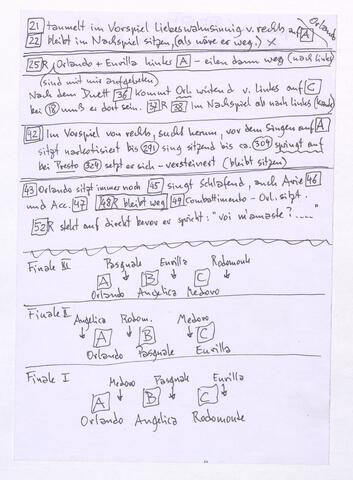 21 taumelt im Vorspiel Liebeswahnsinnig v. rechts auf A Orlando
22 bleibt im Nachspiel sitzen, (als wäre er weg.) x
25R, Orlando + Eurilla links A – eilen dann weg (nach links)
(sind mit mir aufgetreten)
Nach dem Duett 36 kommt Orl. wütend v. links auf C
bei 18 muß er dort sein. 37R 38 Im Nachspiel ab nach links
42 Im Vorspiel von rechts, sucht herum, vor dem Singen auf A
sitzt narkotisiert bis 291 sing sitzend bis ca. 304 springt auf
bei Presto 324 setzt er sich – versteinert (bleibt sitzen)
43 Orlando sitzt immer noch 45 singt schlafend, auch Arie 46
und Acc. 47 48R bleibt weg 49 Combattimento – Orl. sitzt.
52R steht auf direkt bevor er spricht: "voi m'amaste?....."
Finale III Pasquale Eurilla Rodomonte
A B C
Orlando Angelica Medoro
Finale II Angelica Rodom. Medoro
A B C
Orlando Pasquale Eurilla
Finale I Medoro Pasquale Eurilla
A B C
Orlando Angelica Rodomonte